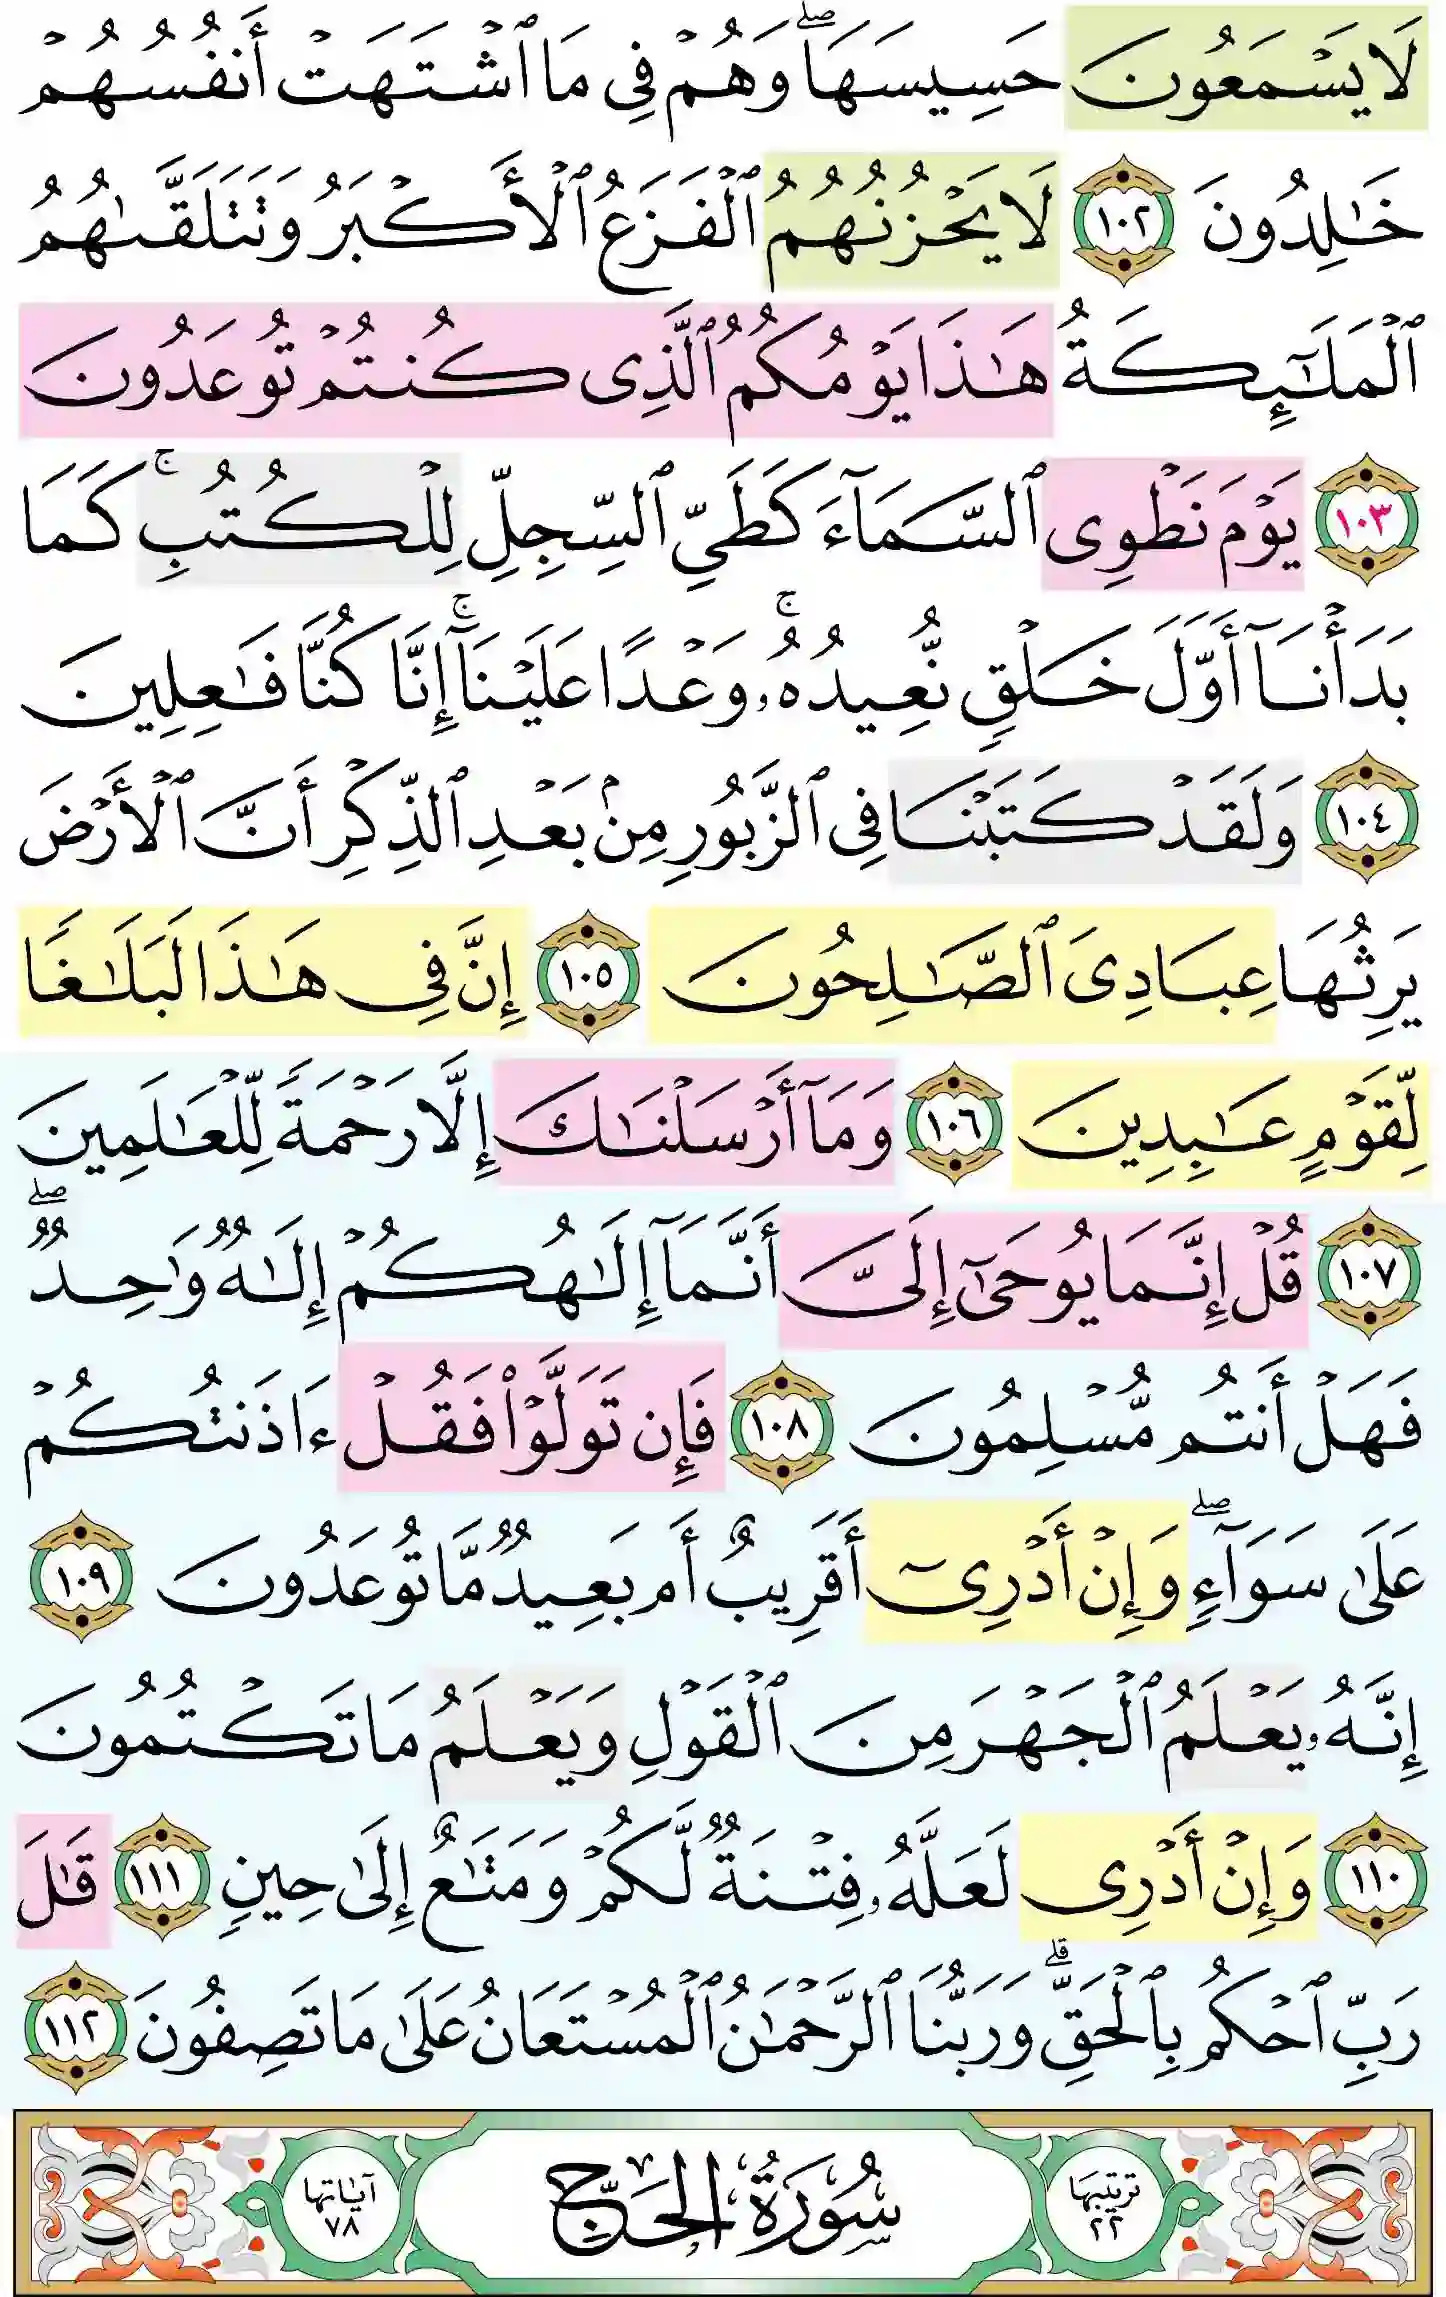 لَا يَسْمَعُونَ حَسِيسَهَا ۖ وَهُمْ فِى مَا ٱشْتَهَتْ أَنفُسُهُمْ
خَـٰلِدُونَ ١٠٢ لَا يَحْزُنُهُمُ ٱلْفَزَعُ ٱلْأَكْبَرُ وَتَتَلَقَّىٰهُمُ
ٱلْمَلَـٰٓئِكَةُ هَـٰذَا يَوْمُكُمُ ٱلَّذِى كُنتُمْ تُوعَدُونَ
١٠٣ يَوْمَ نَطْوِى ٱلسَّمَآءَ كَطَىِّ ٱلسِّجِلِّ لِلْكُتُبِ ۚ كَمَا
بَدَأْنَآ أَوَّلَ خَلْقٍ نُّعِيدُهُۥ ۚ وَعْدًا عَلَيْنَآ ۚ إِنَّا كُنَّا فَـٰعِلِينَ
١٠٤ وَلَقَدْ كَتَبْنَا فِى ٱلزَّبُورِ مِنۢ بَعْدِ ٱلذِّكْرِ أَنَّ ٱلْأَرْضَ
يَرِثُهَا عِبَادِىَ ٱلصَّـٰلِحُونَ ١٠٥ إِنَّ فِى هَـٰذَا لَبَلَـٰغًا
لِّقَوْمٍ عَـٰبِدِينَ ١٠٦ وَمَآ أَرْسَلْنَـٰكَ إِلَّا رَحْمَةً لِّلْعَـٰلَمِينَ
١٠٧ قُلْ إِنَّمَا يُوحَىٰٓ إِلَىَّ أَنَّمَآ إِلَـٰهُكُمْ إِلَـٰهٌ وَٰحِدٌ ۖ
فَهَلْ أَنتُم مُّسْلِمُونَ ١٠٨ فَإِن تَوَلَّوْا۟ فَقُلْ ءَاذَنتُكُمْ
عَلَىٰ سَوَآءٍ ۖ وَإِنْ أَدْرِىٓ أَقَرِيبٌ أَم بَعِيدٌ مَّا تُوعَدُونَ ١٠٩
إِنَّهُۥ يَعْلَمُ ٱلْجَهْرَ مِنَ ٱلْقَوْلِ وَيَعْلَمُ مَا تَكْتُمُونَ
١١٠ وَإِنْ أَدْرِى لَعَلَّهُۥ فِتْنَةٌ لَّكُمْ وَمَتَـٰعٌ إِلَىٰ حِينٍ ١١١ قَـٰلَ
رَبِّ ٱحْكُم بِٱلْحَقِّ ۗ وَرَبُّنَا ٱلرَّحْمَـٰنُ ٱلْمُسْتَعَانُ عَلَىٰ مَا تَصِفُونَ ١١٢
ترتيبها ٢٢ سُورَةُ الحَجِّ آياتها ٧٨